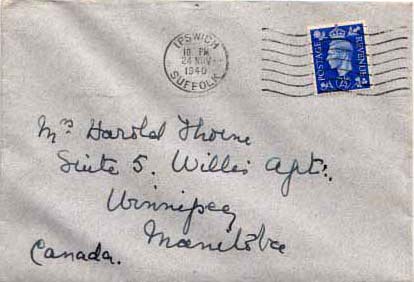 IPSWICH
10 PM
24 NOV
1940
SUFFOLK
POSTAGE REVENUE
Mrs Harold Thorne
Suite 5. Willis Apt.
Winnipeg
Manitoba
Canada.